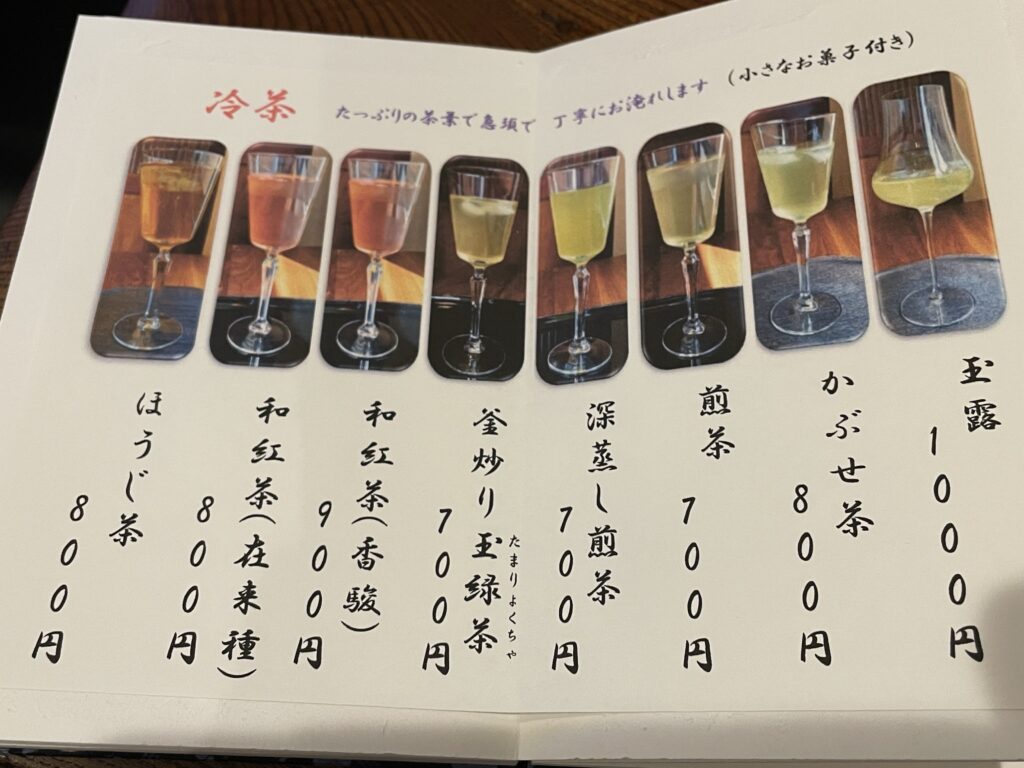 冷茶
たっぷりの茶葉で急須で 丁寧にお淹れします (小さなお菓子付き)
玉露
1000円
かぶせ茶
800円
煎茶
700円
深蒸し煎茶
700円
釜炒り玉緑茶
たまりょくちゃ
700円
和紅茶(香駿)
900円
和紅茶(在来種)
800円
ほうじ茶
800円